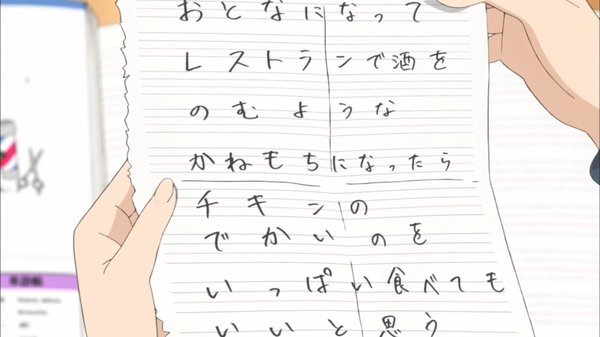 おとなになって
レストランで酒を
のむような
かねもちになったら
チキンの
でかいのを
いっぱい食べても
いいと思う